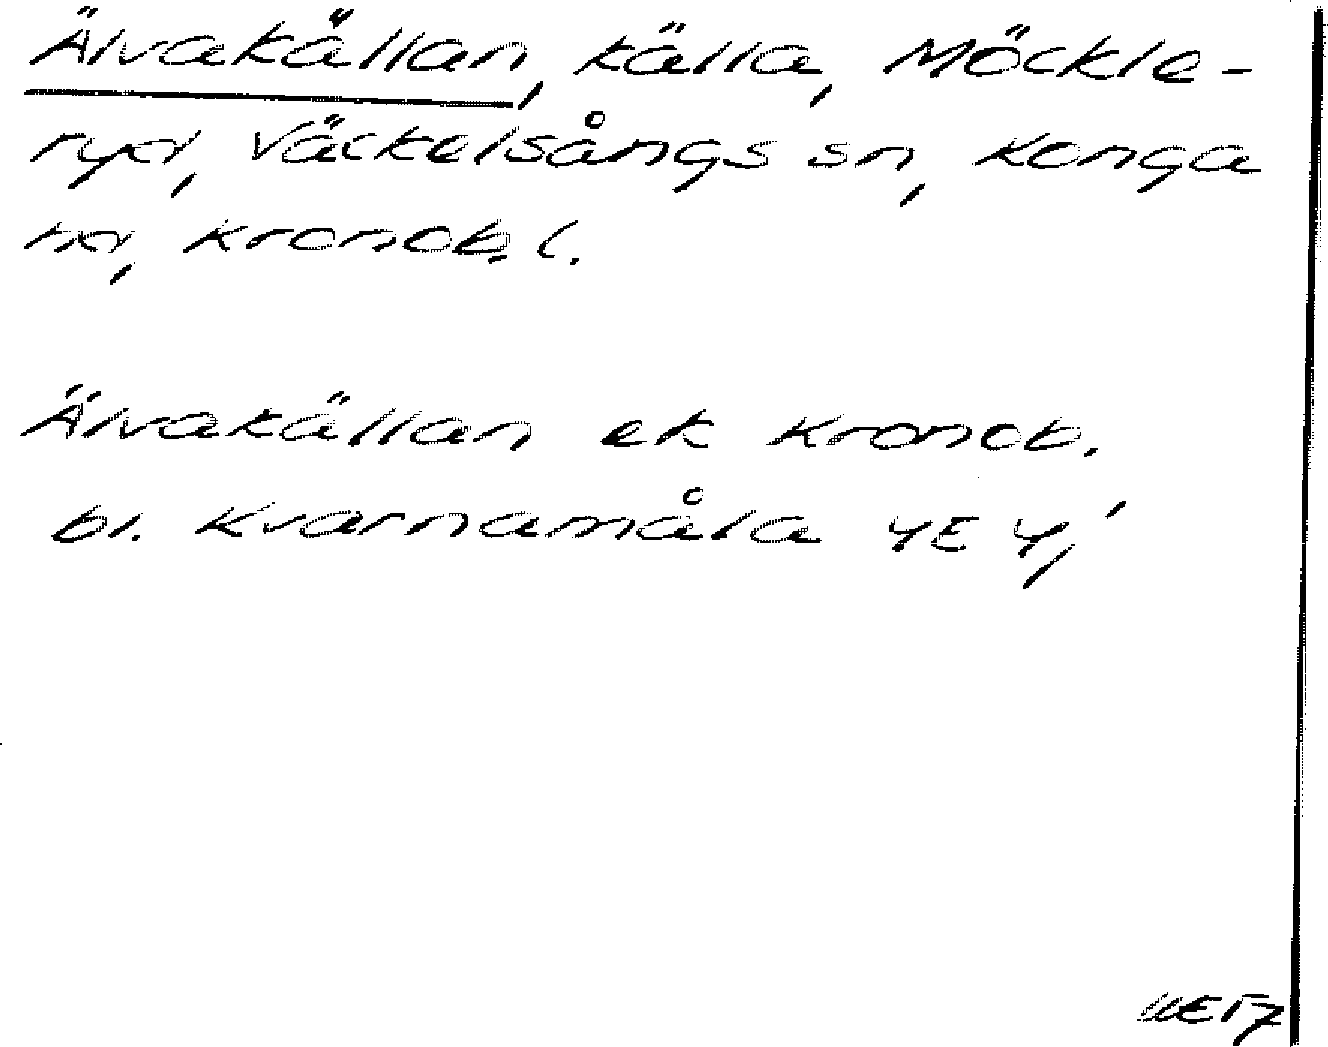 Älvakällan, källa, Möckle-
ryd, Väckelsångs sn, Konga
hd, Kronob. l.
Älvakällan ek Kronob.
bl. Kvarnamåla 4E 4,